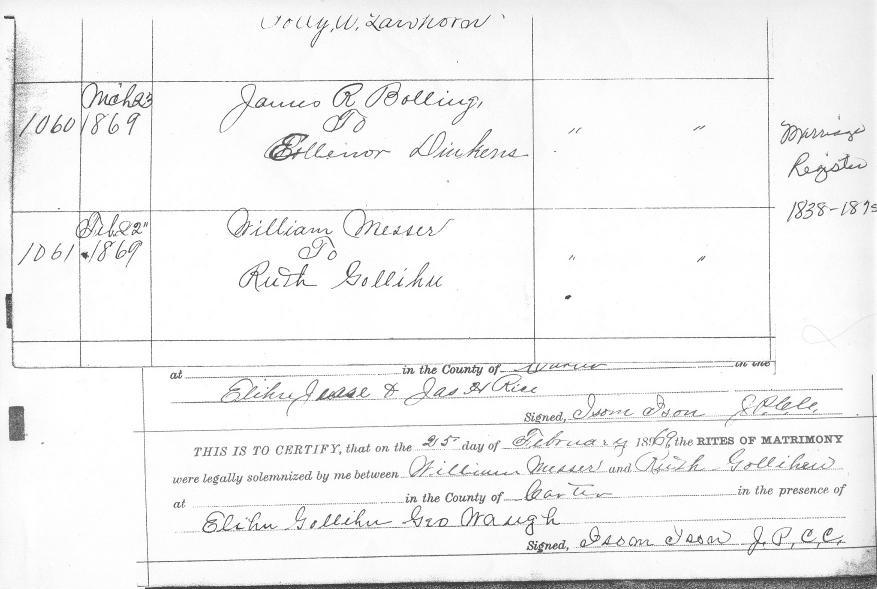 Polly, W. Lawhorn
1060 Mch 23 1869 James R Bolling,
To
Ellenor Dickens " "
1061 Feb. 22" 1869 William Messer
To
Ruth Gollihu " "
Marriage
Register
1838-1875
at in the County of Carter in the
Elihu & Jas H Rice
Signed, Isom Ison J.P.C.C.
THIS IS TO CERTIFY, that on the 25 day of February 1869, the RITES OF MATRIMONY
were legally solemnized by me between William Messer and Ruth Gollihew
at in the County of Carter in the presence of
Elihu Gollihu Geo Waugh
Signed, Isom Ison J. P. C. C.